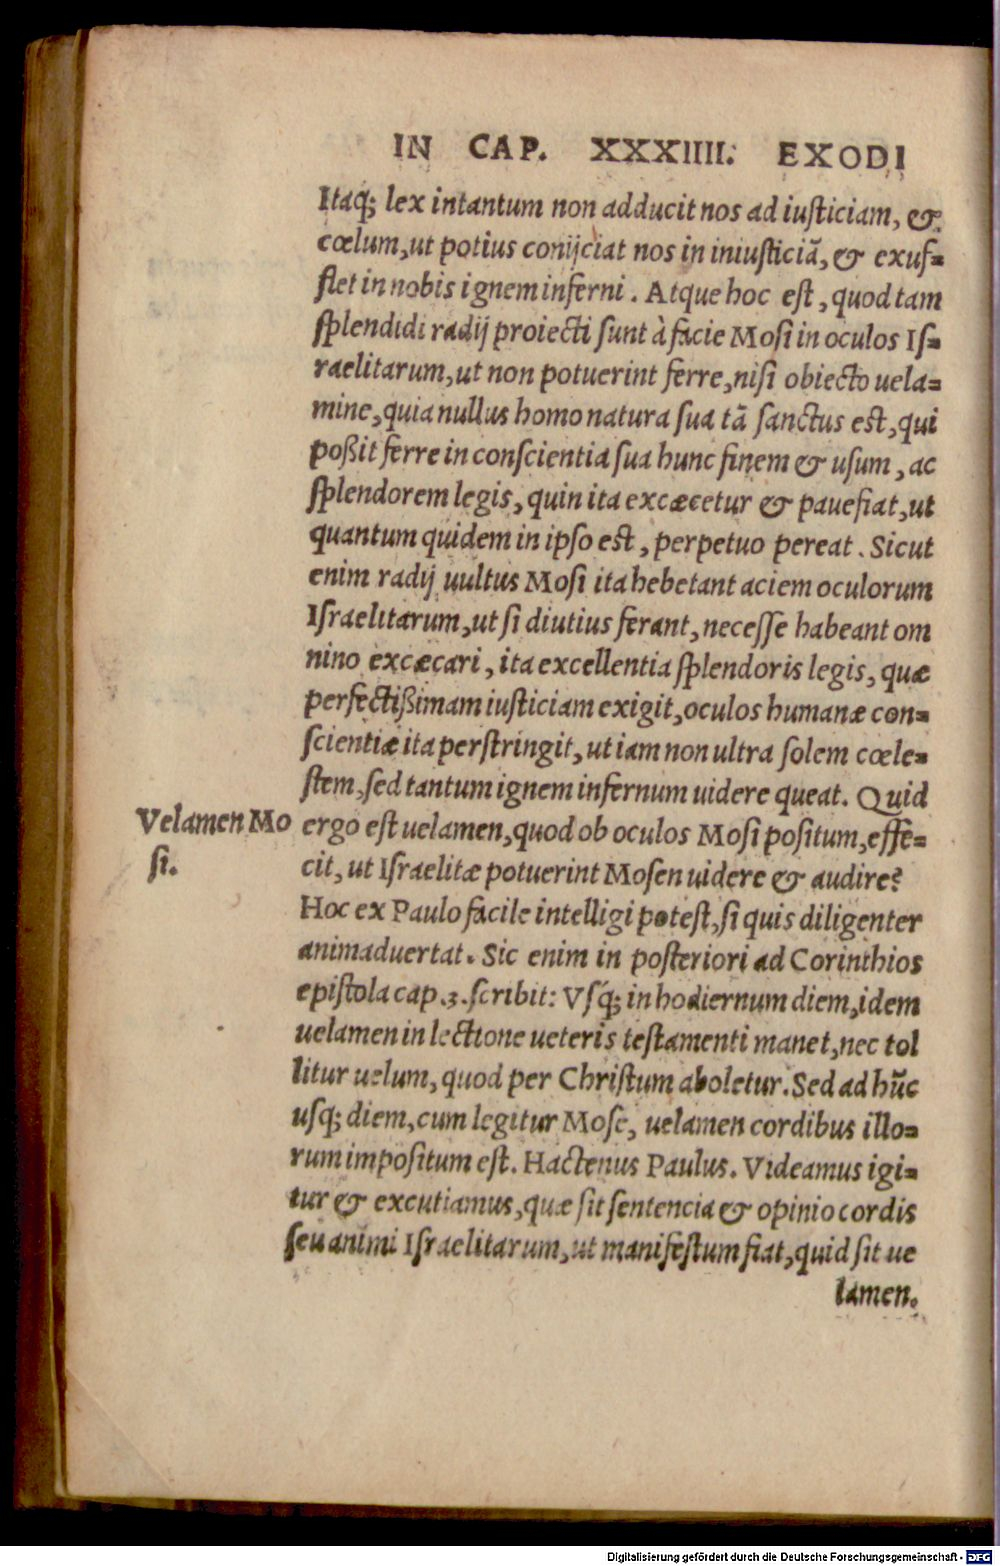 IN CAP. XXXIIII. EXODI
Itaq; lex intantum non adducit nos ad iusticiam, &
cœlum, ut potius conijciat nos in iniusticiã, & exuf-
flet in nobis ignem inferni. Atque hoc est, quod tam
splendidi radij proiecti sunt à facie Mosi in oculos Is-
raelitarum, ut non potuerint ferre, nisi obiecto uela-
mine, quia nullus homo natura sua tã sanctus est, qui
poßit ferre in conscientia sua hunc finem & usum, ac
splendorem legis, quin ita excæcetur & pauefiat, ut
quantum quidem in ipso est, perpetuo pereat. Sicut
enim radij uultus Mosi ita hebetant aciem oculorum
Israelitarum, ut si diutius ferant, necesse habeant om
nino excæcari, ita excellentia splendoris legis, quæ
perfectißimam iusticiam exigit, oculos humanæ con-
scientiæ ita perstringit, ut iam non ultra solem cœle-
stem, sed tantum ignem infernum uidere queat. Quid
Velamen Mo
si.
ergo est uelamen, quod ob oculos Mosi positum, effe-
cit, ut Israelitæ potuerint Mosen uidere & audire?
Hoc ex Paulo facile intelligi potest, si quis diligenter
animaduertat. Sic enim in posteriori ad Corinthios
epistola cap. 3. scribit: Vsq; in hodiernum diem, idem
uelamen in lectione ueteris testamenti manet, nec tol
litur uelum, quod per Christum aboletur. Sed ad hũc
usq; diem, cum legitur Mose, uelamen cordibus illo-
rum impositum est. Hactenus Paulus. Videamus igi-
tur & excutiamus, quæ sit sentencia & opinio cordis
seu animi Israelitarum, ut manifestum fiat, quid sit ue
lamen.
Digitalisierung gefördert durch die Deutsche Forschungsgemeinschaft - DFG